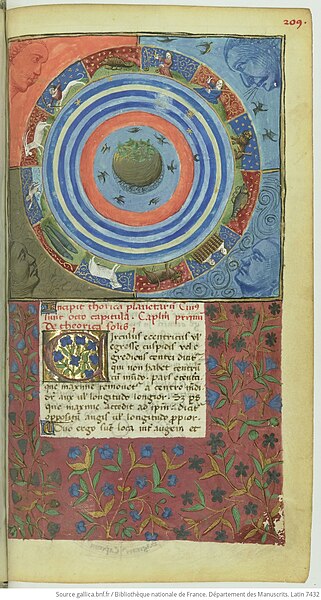 209.
Incipit thorica planetarum Cuius
sunt octo capitula. Caplm primū
De theorica solis
Circulus ecentricus ul'
egresse cuspidis vel e
gredientis centri dicitur
qui non habet centrū
cū mūdo. pars ecentrici
que maxime remouet' a centro mūdi
dr aux ul' longitudo longior. Et pars
que maxime accedit ad ipm̄ dicitur
oppositū augis ul' longitudo ppior.
Que ergo sūt loca int' augem et
Source gallica.bnf.fr / Bibliothèque nationale de France. Département des Manuscrits. Latin 7432